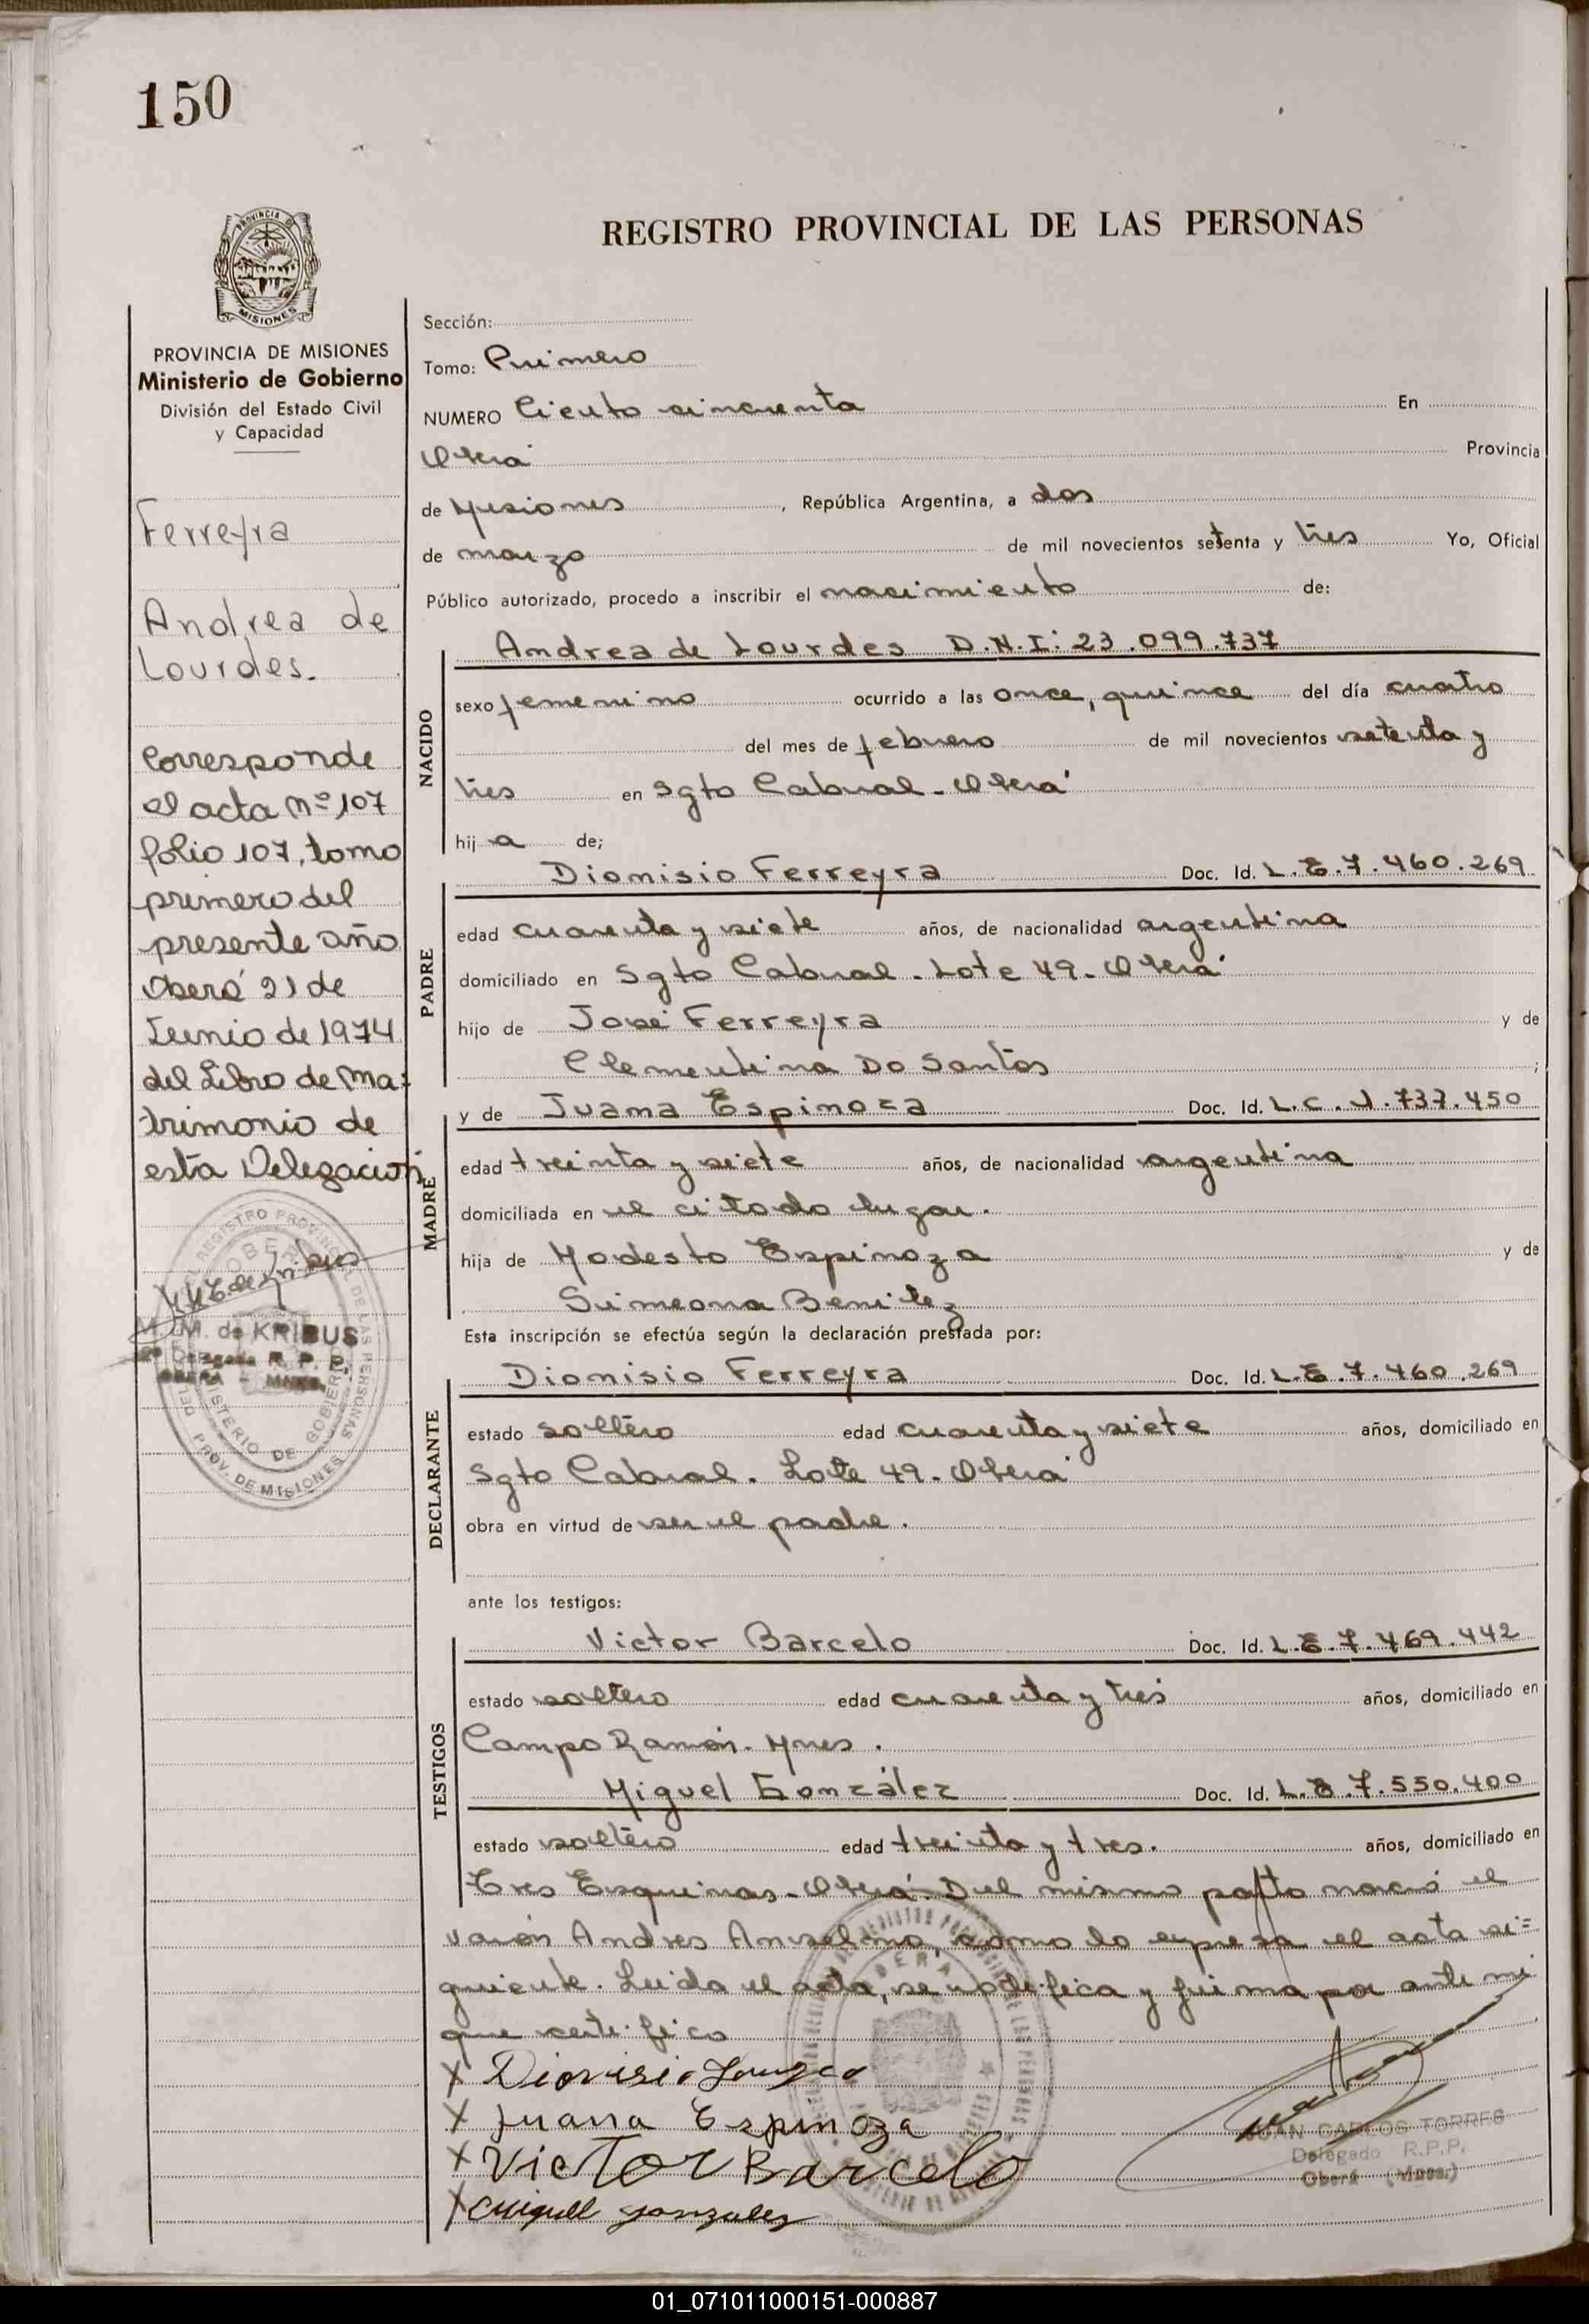 150
PROVINCIA DE
MISIONES
REGISTRO PROVINCIAL DE LAS PERSONAS
PROVINCIA DE MISIONES
Ministerio de Gobierno
División del Estado Civil
y Capacidad
Ferreyra
Andrea de
Lourdes.
Corresponde
el acta Nº 107
folio 107, tomo
primero del
presente año
Oberá 21 de
Junio de 1974
del Libro de Ma=
trimonio de
esta Delegacion
M. de KRIBUS
Delegada R. P. P.
OBERA - MNES.
REGISTRO PROVINCIAL DE LAS PERSONAS
MINISTERIO DE GOBIERNO
PROV. DE MISIONES
Sección:
Tomo: Primero
NUMERO Ciento cincuenta En
Oberá Provincia
de Misiones, República Argentina, a dos
de marzo de mil novecientos setenta y tres Yo, Oficial
Público autorizado, procedo a inscribir el nacimiento de:
NACIDO
Andrea de Lourdes D.N.I: 23.099.737
sexo femenino ocurrido a las once, quince del día cuatro
del mes de febrero de mil novecientos setenta y
tres en Sgto Cabral - Oberá
hij a de;
PADRE
Dionisio Ferreyra Doc. Id. L.E.7.460.269
edad cuarenta y siete años, de nacionalidad argentina
domiciliado en Sgto Cabral - Lote 49 - Oberá
hijo de José Ferreyra y de
Clementina Do Santos ;
MADRE
y de Juana Espinoza Doc. Id. L.C. 737.450
edad treinta y siete años, de nacionalidad argentina
domiciliada en el citado lugar.
hija de Modesto Espinoza y de
Simeona Benitez
Esta inscripción se efectúa según la declaración prestada por:
DECLARANTE
Dionisio Ferreyra Doc. Id. L.E.7.460.269
estado soltero edad cuarenta y siete años, domiciliado en
Sgto Cabral. Lote 49 - Oberá
obra en virtud de ser el padre.
ante los testigos:
TESTIGOS
Victor Barcelo Doc. Id. L.E.7.469.442
estado soltero edad cuarenta y tres años, domiciliado en
Campo Ramón. Mnes.
Miguel González Doc. Id. L.E.7.550.400
estado soltero edad treinta y tres. años, domiciliado en
Tres Esquinas - Oberá. Del mismo parto nació el
varón Andres Anselmo, como lo expresa el acta si=
guiente. Leida el acta, se notifica y firma por ante mi
que certifico
X Dionisio
X Juana Espinoza
X Victor Barcelo
X Miguell gonzalez
JUAN CARLOS TORRES
Delegado R.P.P.
Oberá (Mnes.)
01_071011000151-000887